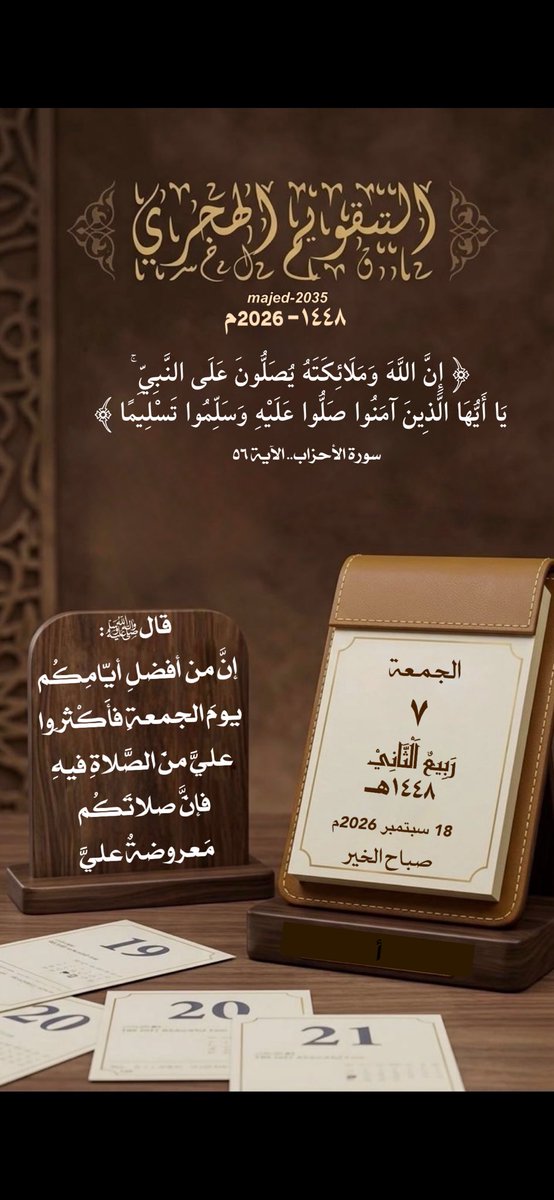 التقويم الهجري
majed-2035
١٤٤٨ – 2026م
﴿ إِنَّ اللَّهَ وَمَلَائِكَتَهُ يُصَلُّونَ عَلَى النَّبِيِّ ۚ
يَا أَيُّهَا الَّذِينَ آمَنُوا صَلُّوا عَلَيْهِ وَسَلِّمُوا تَسْلِيمًا ﴾
سورة الأحزاب.. الآية ٥٦
قال ﷺ :
إنَّ من أفضلِ أيّامِكُم
يومَ الجمعةِ فأَكْثروا
عليَّ منَ الصَّلاةِ فيهِ
فإنَّ صلاتَكُم
مَعروضةٌ عليَّ
الجمعة
٧
رَبِيعٌ الْثَّانِيْ
١٤٤٨هـ
18 سبتمبر 2026م
صباح الخير
أ
19
20
20
21